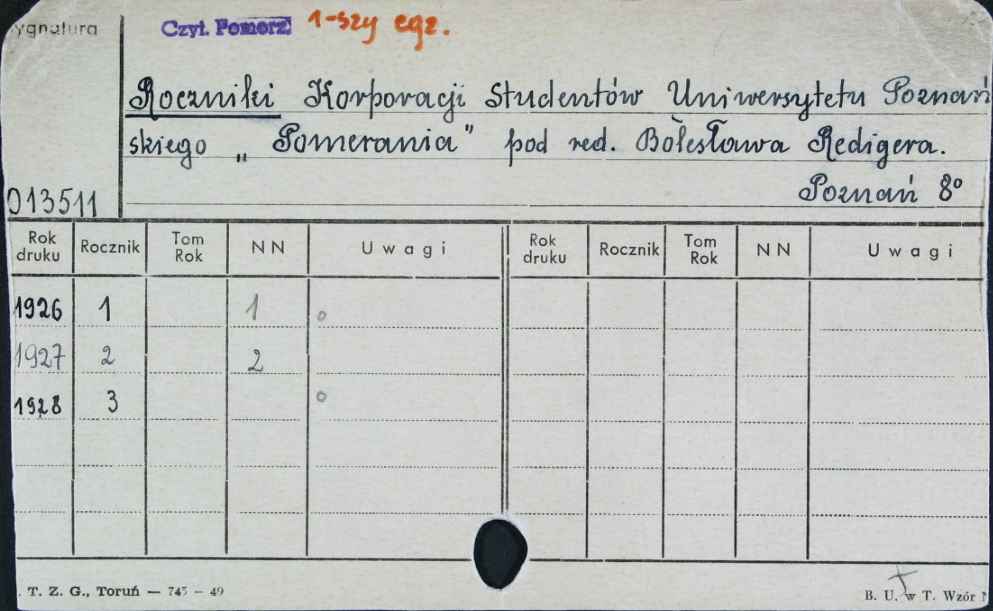 ygnatura
Czyt. Pomorz. 1-szy egz.
Roczniki Korporacji Studentów Uniwersytetu Poznań
skiego „Pomerania" pod red. Bolesława Redigera.
Poznań 8°
013511
Rok druku Rocznik Tom Rok NN Uwagi Rok druku Rocznik Tom Rok NN Uwagi
1926 1 1 o
1927 2 2
1928 3 o
. T. Z. G., Toruń — 745 — 49
B. U. w T. Wzór